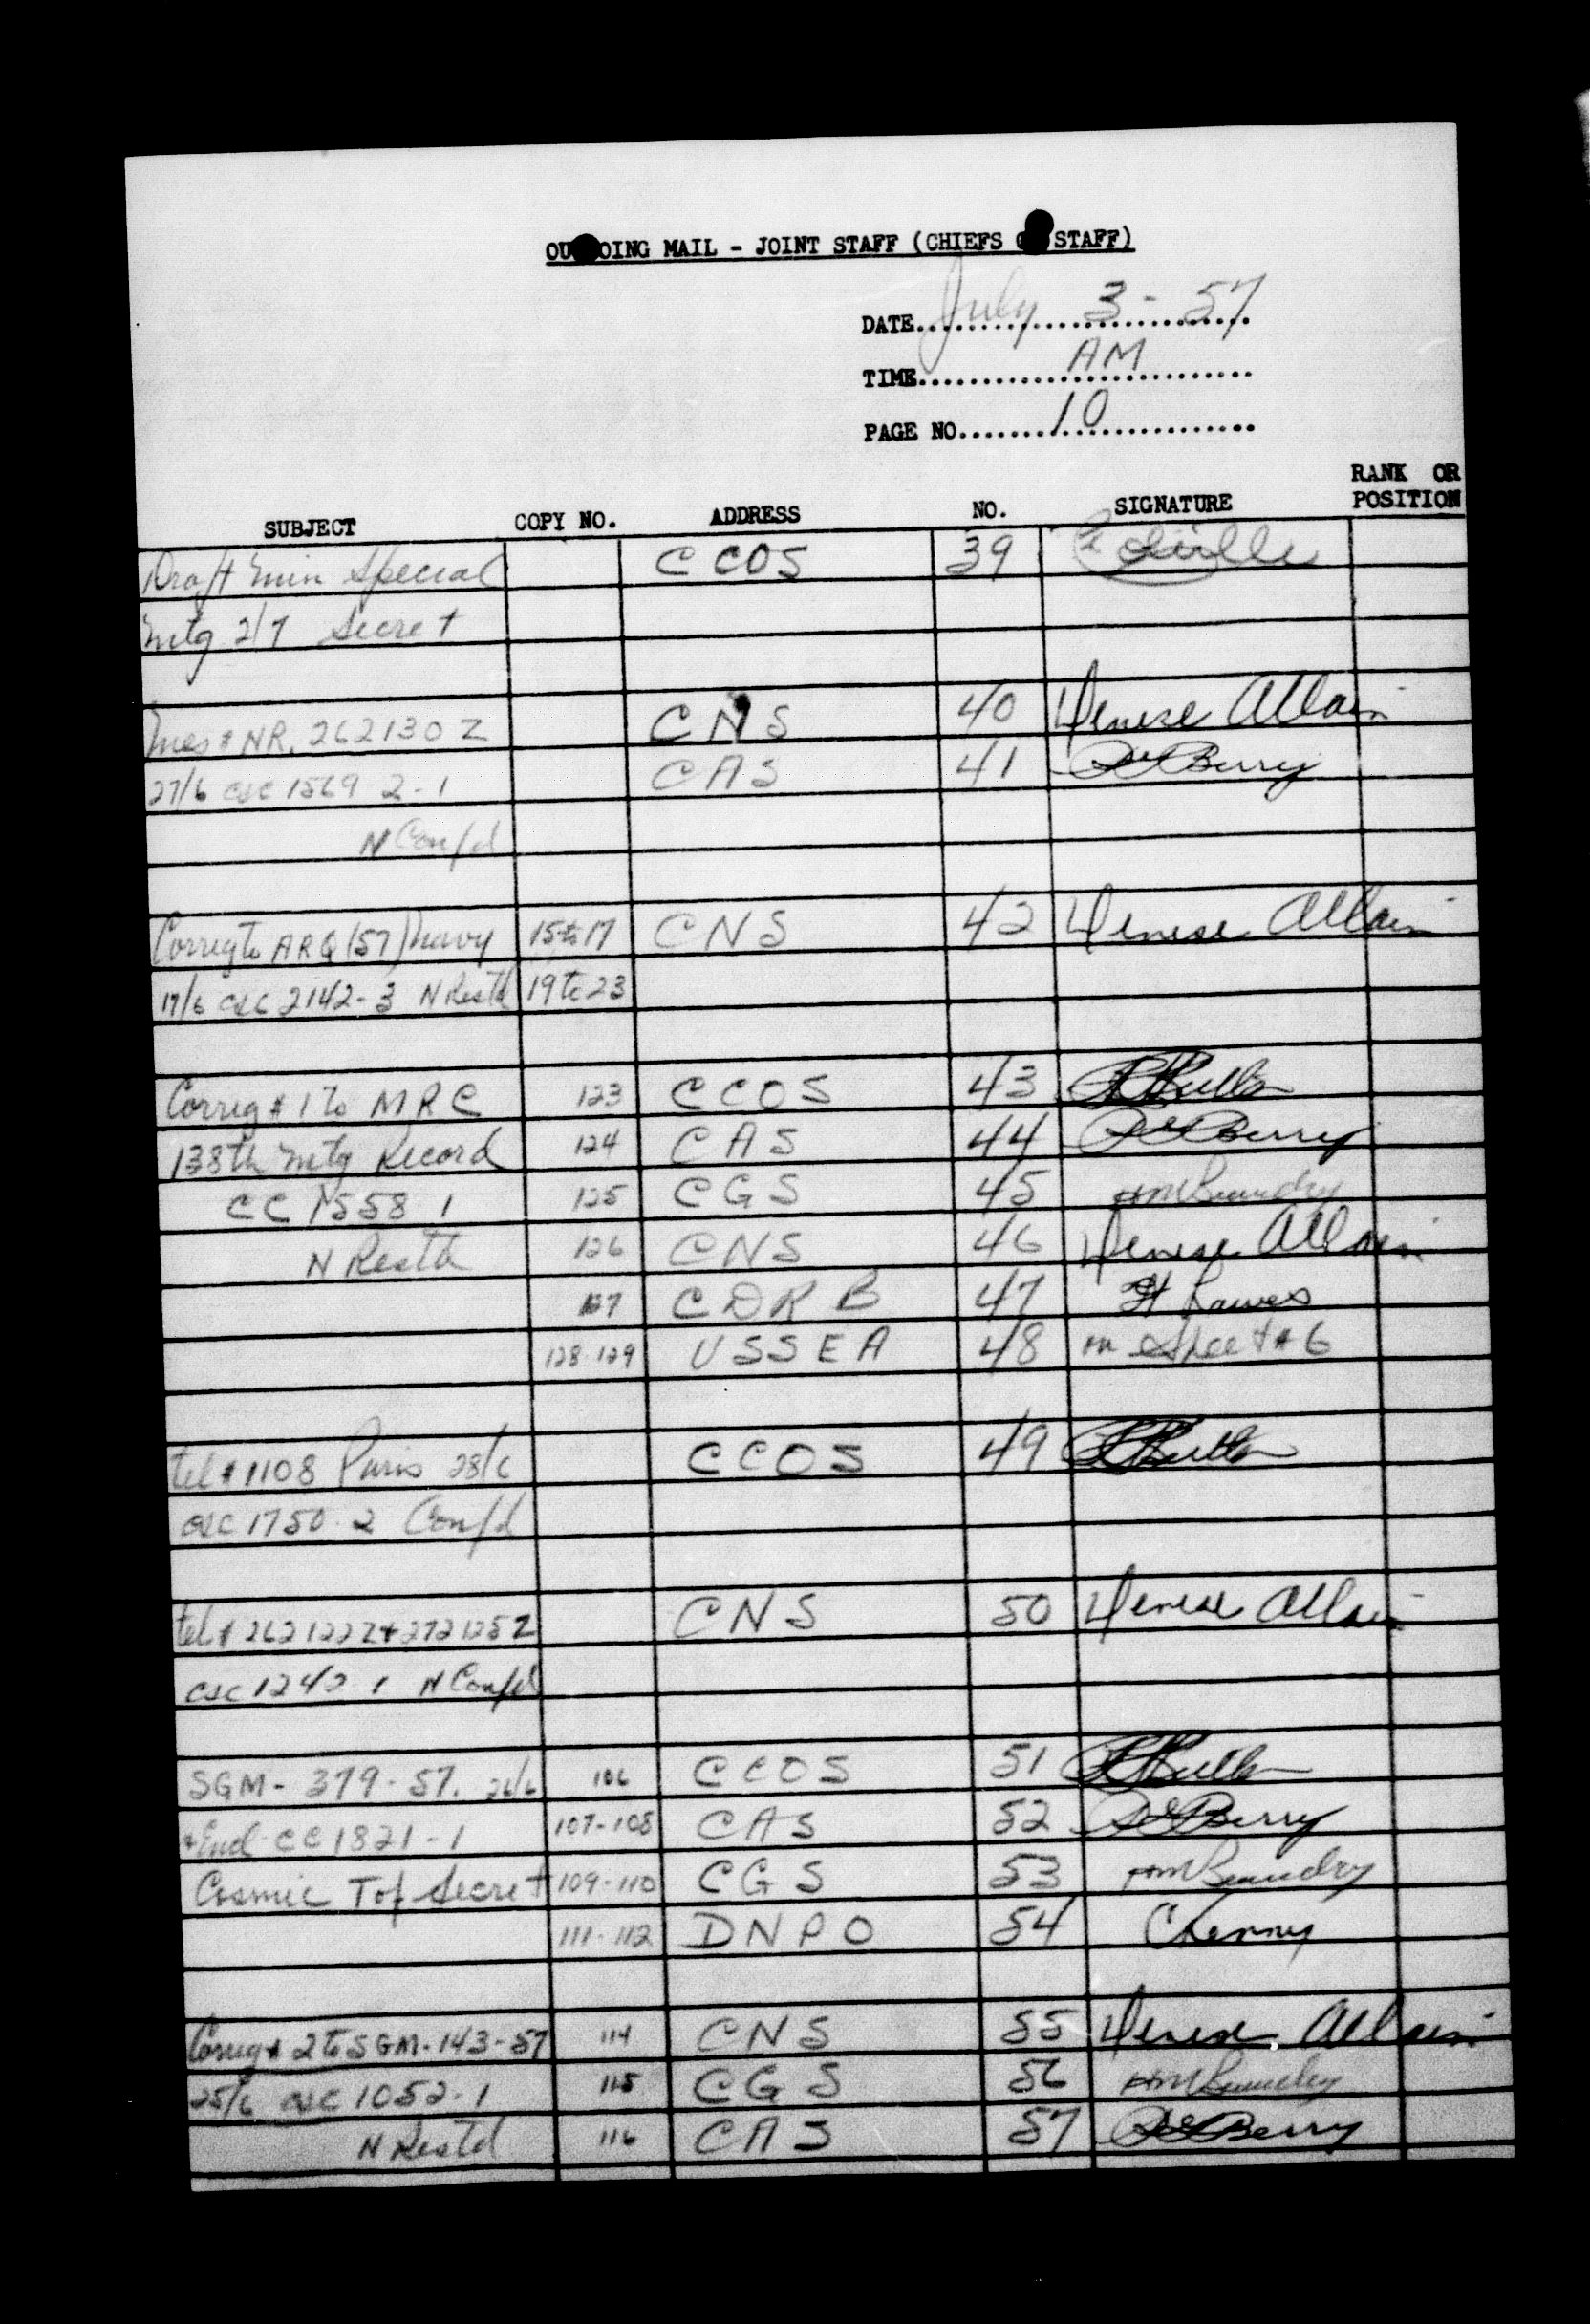 OUTGOING MAIL - JOINT STAFF (CHIEFS OF STAFF)
DATE July 3 - 57
TIME AM
PAGE NO. 10
SUBJECT COPY NO. ADDRESS NO. SIGNATURE RANK OR POSITION
Draft Min Special CCOS 39
Mtg 2/7 Secret
Mes # NR. 262130Z CNS 40 Denise Allain
27/6 CSC 1569 2-1 CAS 41 Berry
N Conf'd
Corrig to ARQ (57) Navy 15 to 17 CNS 42 Denise Allain
17/6 CSC 2142-3 N Restd 19 to 23
Corrig # 1 to MRC 123 CCOS 43
138th Mtg Record 124 CAS 44 Berry
CC 1558 1 125 CGS 45
N Restd 126 CNS 46 Denise Allain
127 CDRB 47 Lawes
128-129 USSEA 48 on sheet # 6
tel # 1108 Paris 28/6 CCOS 49
CSC 1750-2 Conf'd
tel # 262122Z + 272125Z CNS 50 Denise Allain
CSC 1242-1 N Conf'd
SGM-379-57. 26/6 106 CCOS 51
+ Encl CC 1821-1 107-108 CAS 52 Berry
Cosmic Top Secret 109-110 CGS 53
111-112 DNPO 54 Cherry
Corrig # 2 to SGM-143-57 114 CNS 55 Denise Allain
25/6 CSC 1052-1 115 CGS 56
N Restd 116 CAS 57 Berry